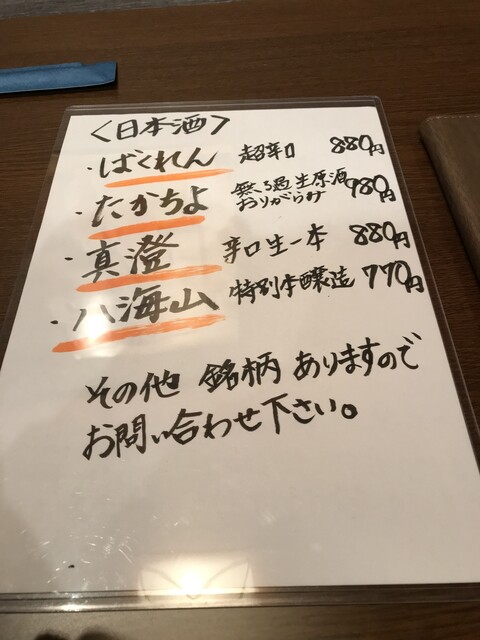 <日本酒>
・ばくれん 超辛口 880円
・たかちよ 無ろ過生原酒 おりがらみ 980円
・真澄 辛口生一本 880円
・八海山 特別本醸造 770円
その他 銘柄 ありますので
お問い合わせ下さい。